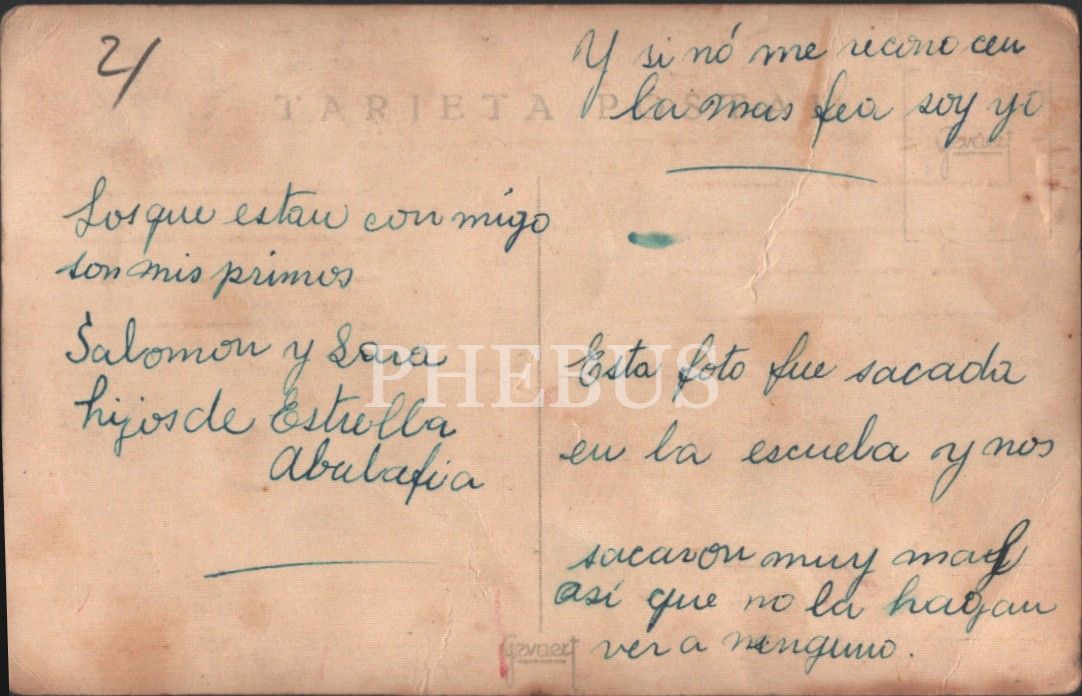 21
TARJETA POSTAL
Y si nó me reconocen
la mas fea soy yo
Gevaert
Los que estan con migo
son mis primos
Salomon y Sara
hijos de Estrella
Abulafia
PHEBUS
Esta foto fue sacada
en la escuela y nos
sacaron muy mal
asi que no la hagan
ver a ninguno.
Gevaert